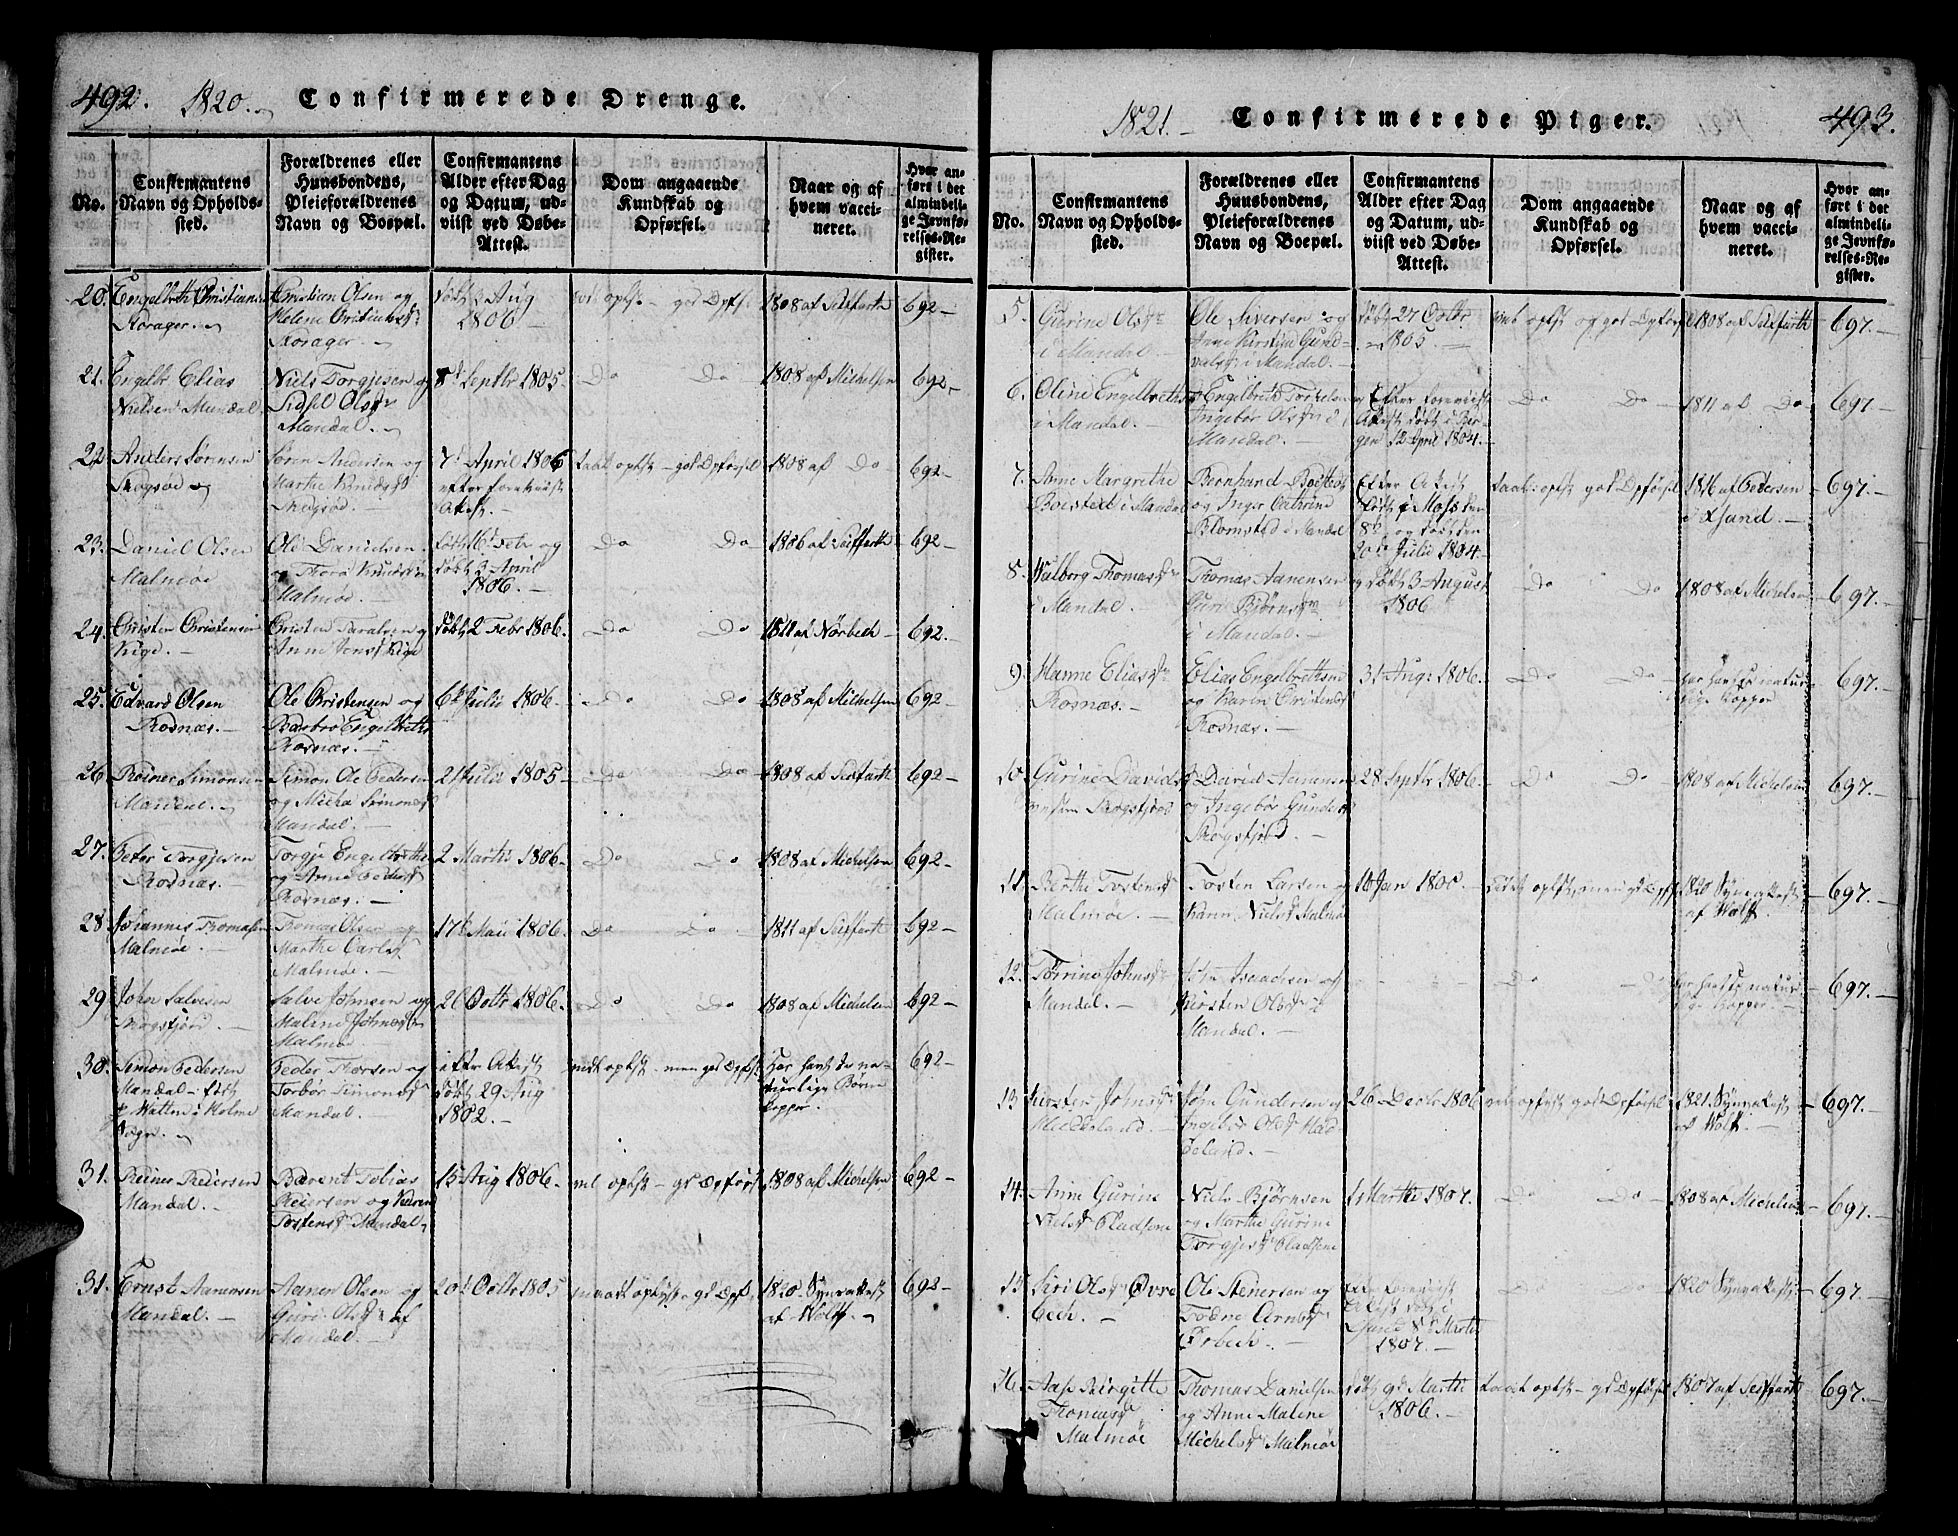 492. 1820. Confirmerede Drenge.
No.
Confirmantens
Navn og Opholds-
sted.
Forældrenes eller
Huusbondens,
Pleieforældrenes
Navn og Boepæl.
Confirmantens
Alder efter Dag
og Datum, ud-
viist ved Døbe-
Attest.
Dom angaaende
Kundskab og
Opførsel.
Naar og af
hvem vacci-
neret.
Hvor an-
ført i det
almindeli-
ge Jevnfø-
relses-Re-
gister.
20. Engelbreth Christians
Korager.
Christian Olsen og
Helene
Korager.
født 3 Aug
1806
opl god Opfs.
1808 af Seiffarth
692
21. Engelbr Elias
Nielsen Mandal.
Niels Torgjesen og
Sidsel Olsdr
Mandal.
8d Septbr 1805.
Do Do
1808 af Michelsen
692
22 Anders Sørensen
Skogsøe
Søren Andersen og
Marthe
Skogsøe.
7d April 1806
efter foreviist
Attest.
opl god Opførsel
1808 af Do
692
23. Daniel Olsen
Malmøe
Ole Danielsen
og Thora
Malmøe.
og
døbt 3 April
1806.
Do Do
1806 af Seiffarth
692
24. Christen Christensen
Kige.
Christen Taralsen og
Anne Jens Kige
født 2 Febr 1806.
Do Do
1811 af Nørbech
692.
25. Edvard Olsen
Rosnæs.
Ole Christensen og
Barbro Engelbreths
Rosnæs.
6d Julii 1806.
Do Do
1808 af Michelsen
692
26. Reiner Simonsen
Mandal.
Simon Ole Pedersen
og Micha Simonsd
Mandal.
21 Julii 1805
Do Do
1808 af Seiffarth
692
27. Peder Torgjesen
Rosnæs.
Torgje Engelbreths
og Anne Pedersd
Rosnæs.
2 Martii 1806.
Do Do
1808 af Michelsen
692
28 Johannes Thomasen
Malmøe.
Thomas Olsen og
Marthe Carlsd
Malmøe.
17d Maii 1806.
Do Do
1811 af Seiffarth
692
29. John Salvesen
Skogsfjord.
Salve Johnsen og
Malene Johnsd
Malmøe.
26 Octbr 1806.
Do Do
1808 af Michelsen
692
30. Simon Pedersen
Mandal født
Watten i Holme
Sogn.
Peder Thorsen og
Torbor Simonsd
Mandal.
efter Attest
født 29 Aug
1802.
opl men god Opfs
Har havt de na-
turlige Børne
kopper.
692
31. Reiner Pedersen
Mandal.
Berent Tobias
Reiersen og Karen
Tostensd Mandal
15 Aug 1806.
vel opl gd Opførs
1808 af Michelsen
692
31. Ernst Aanensen
Mandal.
Aanen Olsen og
Guri Olsdr af
Mandal
20d Octbr 1805
maadl opl gd Opfs.
1820 Synsattest
af Wolff.
692
1821. Confirmerede Piger. 493.
No.
Confirmantens
Navn og Opholds-
sted.
Forældrenes eller
Huusbondens,
Pleieforældrenes
Navn og Boepæl.
Confirmantens
Alder efter Dag
og Datum, ud-
viist ved Døbe-
Attest.
Dom angaaende
Kundskab og
Opførsel.
Naar og af
hvem vacci-
neret.
Hvor an-
ført i det
almindeli-
ge Jevnfø-
relses-Re-
gister.
5. Gurine Olsdr
i Mandal.
Ole Siversen og
Anne Kirstine Gund-
valds i Mandal.
født 27 Octbr
1805.
opl og god Opførsel
1808 af Seiffarth
697.
6. Oline Engelbreths
i Mandal.
Engelbreth Torkelsen
Ingebor Olsdr i
Mandal.
Efter foreviist
Attest født i Ber-
gen 12 April 1804.
Do Do
1811 af Do
697
7. Anne Margrethe
Boisted i Mandal
Bernhard Boisted
og Inger Cathrine
Blomsted i Mandal
Efter Attest
født i Moss den
8d og døbt den
20d Julii 1804.
taal. opl god Opførsel
1816 af Pedersen
i Xsand.
697.
8. Valborg Thomasdr
i Mandal.
Thomas Aanensen
Guri Bjørnsdr
i Mandal.
født 3 August
1806
Do Do
1808 af Michelsen
697.
9. Hanne Eliasdr
Rosnæs.
Elias Engelbrethsen
og Karen Christensd
Rosnæs.
31 Aug: 1806.
Do Do
har havt de natur-
lige Kopper
697.
10. Gurine Davids
Skogsfjord
David Aanensen
og Ingebor Gunders
Skogsfjord.
28 Septbr 1806.
Do Do
1808 af Michelsen
697.
11. Berthe Tostensd
Malmøe.
Tosten Larsen og
Karen Nielsd Malmøe
Jan 1806.
opl, men gd Opfs
1820 Synsattest
af Wolff.
697
12. Torine Johnsdr
Mandal.
John Isaachsen og
Kirsten Olsdr i
Mandal.
Do Do
har havt de natur-
lige Kopper.
697.
13 Kirsten Johnsdr
John Gundersen og
Ingebor Olsd
26 Decbr 1806
vel opl god Opførsel
1821. Synsattest
af Wolff.
697.
14. Anne Gurine
Nielsd Pladsene
Niels Bjørnsen
og Marthe Gurine
Torgjesd Pladsene
1 Martii 1807.
Do Do
1808 af Michelsen
697.
15. Siri Olsd Øvre
bech.
Ole Stenersen og
Todne Arnesd
Ørbech.
Efter foreviist
Attest født i
Xsand 8d Martii
1807.
Do Do
1820 Synsattest
697.
16. Aase Birgitte
Thomasd
Malmøe
Thomas Danielsen
og Anne Malene
Michelsd Malmøe
født 9d Martii
1806.
taal opl gd Opførsel
1807 af Seiffarth
697.